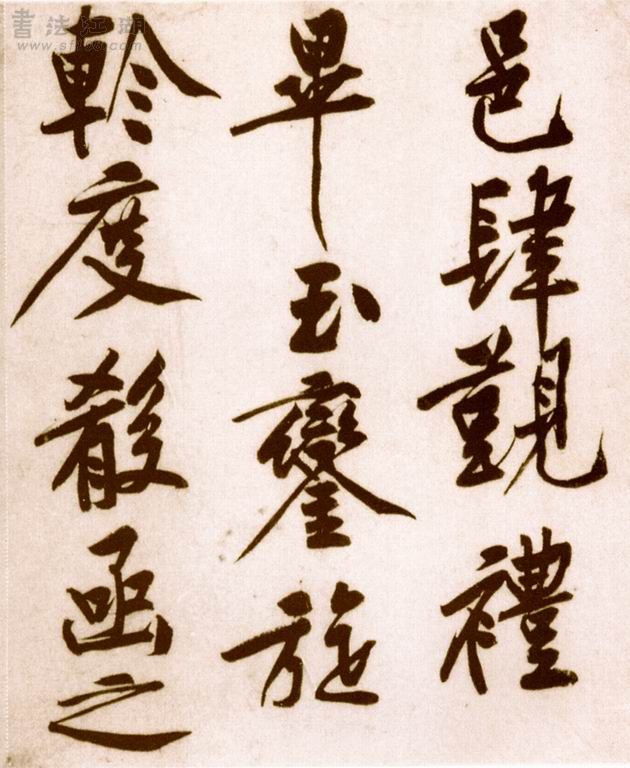 邑肆覲禮
畢玉鑾旋
軫度殽函之
書法江湖